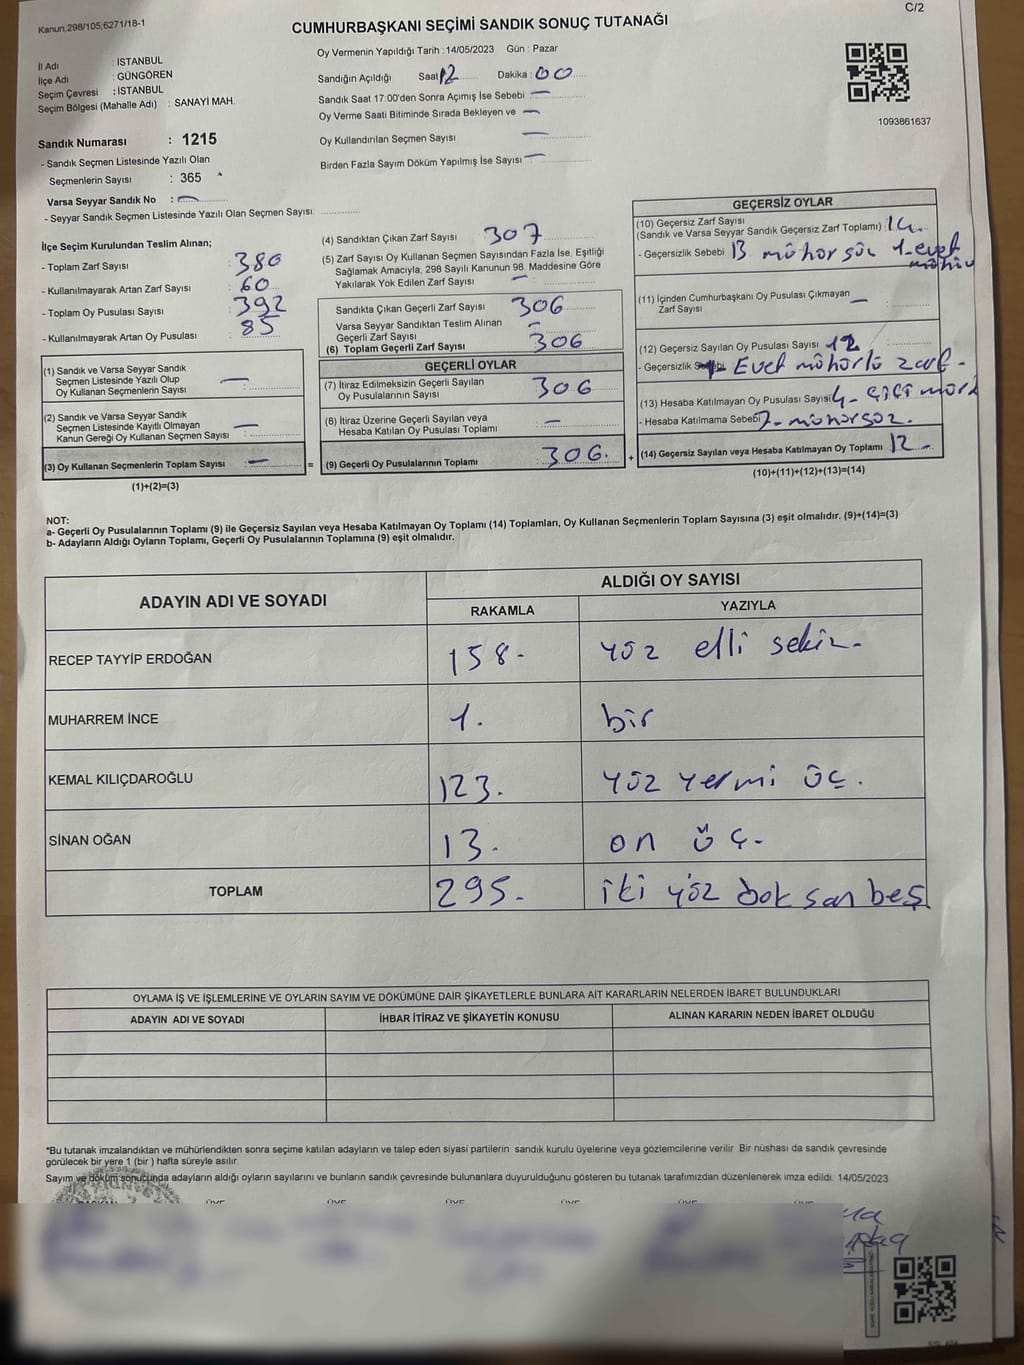 Kanun:298/105;6271/18-1
C/2
CUMHURBAŞKANI SEÇİMİ SANDIK SONUÇ TUTANAĞI
İl Adı : İSTANBUL
İlçe Adı : GÜNGÖREN
Seçim Çevresi : İSTANBUL
Seçim Bölgesi (Mahalle Adı) : SANAYİ MAH.
Sandık Numarası : 1215
- Sandık Seçmen Listesinde Yazılı Olan
Seçmenlerin Sayısı : 365
Varsa Seyyar Sandık No : —
- Seyyar Sandık Seçmen Listesinde Yazılı Olan Seçmen Sayısı:
Oy Vermenin Yapıldığı Tarih :14/05/2023 Gün : Pazar
Sandığın Açıldığı Saat 12 Dakika : 00
Sandık Saat 17:00'den Sonra Açımış İse Sebebi —
Oy Verme Saati Bitiminde Sırada Bekleyen ve —
Oy Kullandırılan Seçmen Sayısı —
Birden Fazla Sayım Döküm Yapılmış İse Sayısı —
1093861637
İlçe Seçim Kurulundan Teslim Alınan;
- Toplam Zarf Sayısı : 380
- Kullanılmayarak Artan Zarf Sayısı : 60
- Toplam Oy Pusulası Sayısı : 392
- Kullanılmayarak Artan Oy Pusulası : 85
(1) Sandık ve Varsa Seyyar Sandık
Seçmen Listesinde Yazılı Olup
Oy Kullanan Seçmenlerin Sayısı : —
(2) Sandık ve Varsa Seyyar Sandık
Seçmen Listesinde Kayıtlı Olmayan
Kanun Gereği Oy Kullanan Seçmen Sayısı : —
(3) Oy Kullanan Seçmenlerin Toplam Sayısı : —
(1)+(2)=(3)
(4) Sandıktan Çıkan Zarf Sayısı 307
(5) Zarf Sayısı Oy Kullanan Seçmen Sayısından Fazla İse, Eşitliği
Sağlamak Amacıyla, 298 Sayılı Kanunun 98. Maddesine Göre
Yakılarak Yok Edilen Zarf Sayısı —
Sandıkta Çıkan Geçerli Zarf Sayısı 306
Varsa Seyyar Sandıktan Teslim Alınan
Geçerli Zarf Sayısı —
(6) Toplam Geçerli Zarf Sayısı 306
GEÇERLİ OYLAR
(7) İtiraz Edilmeksizin Geçerli Sayılan
Oy Pusulalarının Sayısı : 306
(8) İtiraz Üzerine Geçerli Sayılan veya
Hesaba Katılan Oy Pusulası Toplamı : —
= (9) Geçerli Oy Pusulalarının Toplamı : 306.
GEÇERSİZ OYLAR
(10) Geçersiz Zarf Sayısı
(Sandık ve Varsa Seyyar Sandık Geçersiz Zarf Toplamı) : 14.
- Geçersizlik Sebebi 13 mühorsüz 1-evet
(11) İçinden Cumhurbaşkanı Oy Pusulası Çıkmayan
Zarf Sayısı —
(12) Geçersiz Sayılan Oy Pusulası Sayısı 12
- Geçersizlik Evet mühürlü zarf -
(13) Hesaba Katılmayan Oy Pusulası Sayısı 4-
- Hesaba Katılmama Sebebi 7- mühorsüz.
+ (14) Geçersiz Sayılan veya Hesaba Katılmayan Oy Toplamı 12 -
(10)+(11)+(12)+(13)=(14)
NOT:
a- Geçerli Oy Pusulalarının Toplamı (9) ile Geçersiz Sayılan veya Hesaba Katılmayan Oy Toplamı (14) Toplamları, Oy Kullanan Seçmenlerin Toplam Sayısına (3) eşit olmalıdır. (9)+(14)=(3)
b- Adayların Aldığı Oyların Toplamı, Geçerli Oy Pusulalarının Toplamına (9) eşit olmalıdır.
ADAYIN ADI VE SOYADI ALDIĞI OY SAYISI
RAKAMLA YAZIYLA
RECEP TAYYİP ERDOĞAN 158- yüz elli sekiz-
MUHARREM İNCE 1. bir
KEMAL KILIÇDAROĞLU 123. yüz yermi üç.
SİNAN OĞAN 13. on üç.
TOPLAM 295. iki yüz doksan beş
OYLAMA İŞ VE İŞLEMLERİNE VE OYLARIN SAYIM VE DÖKÜMÜNE DAİR ŞİKAYETLERLE BUNLARA AİT KARARLARIN NELERDEN İBARET BULUNDUKLARI
ADAYIN ADI VE SOYADI İHBAR İTİRAZ VE ŞİKAYETİN KONUSU ALINAN KARARIN NEDEN İBARET OLDUĞU
*Bu tutanak imzalandıktan ve mühürlendikten sonra seçime katılan adayların ve talep eden siyasi partilerin sandık kurulu üyelerine veya gözlemcilerine verilir Bir nüshası da sandık çevresinde
görülecek bir yere 1 (bir ) hafta süreyle asılır.
Sayım ve döküm sonucunda adayların aldığı oyların sayılarını ve bunların sandık çevresinde bulunanlara duyurulduğunu gösteren bu tutanak tarafımızdan düzenlenerek imza edildi. 14/05/2023